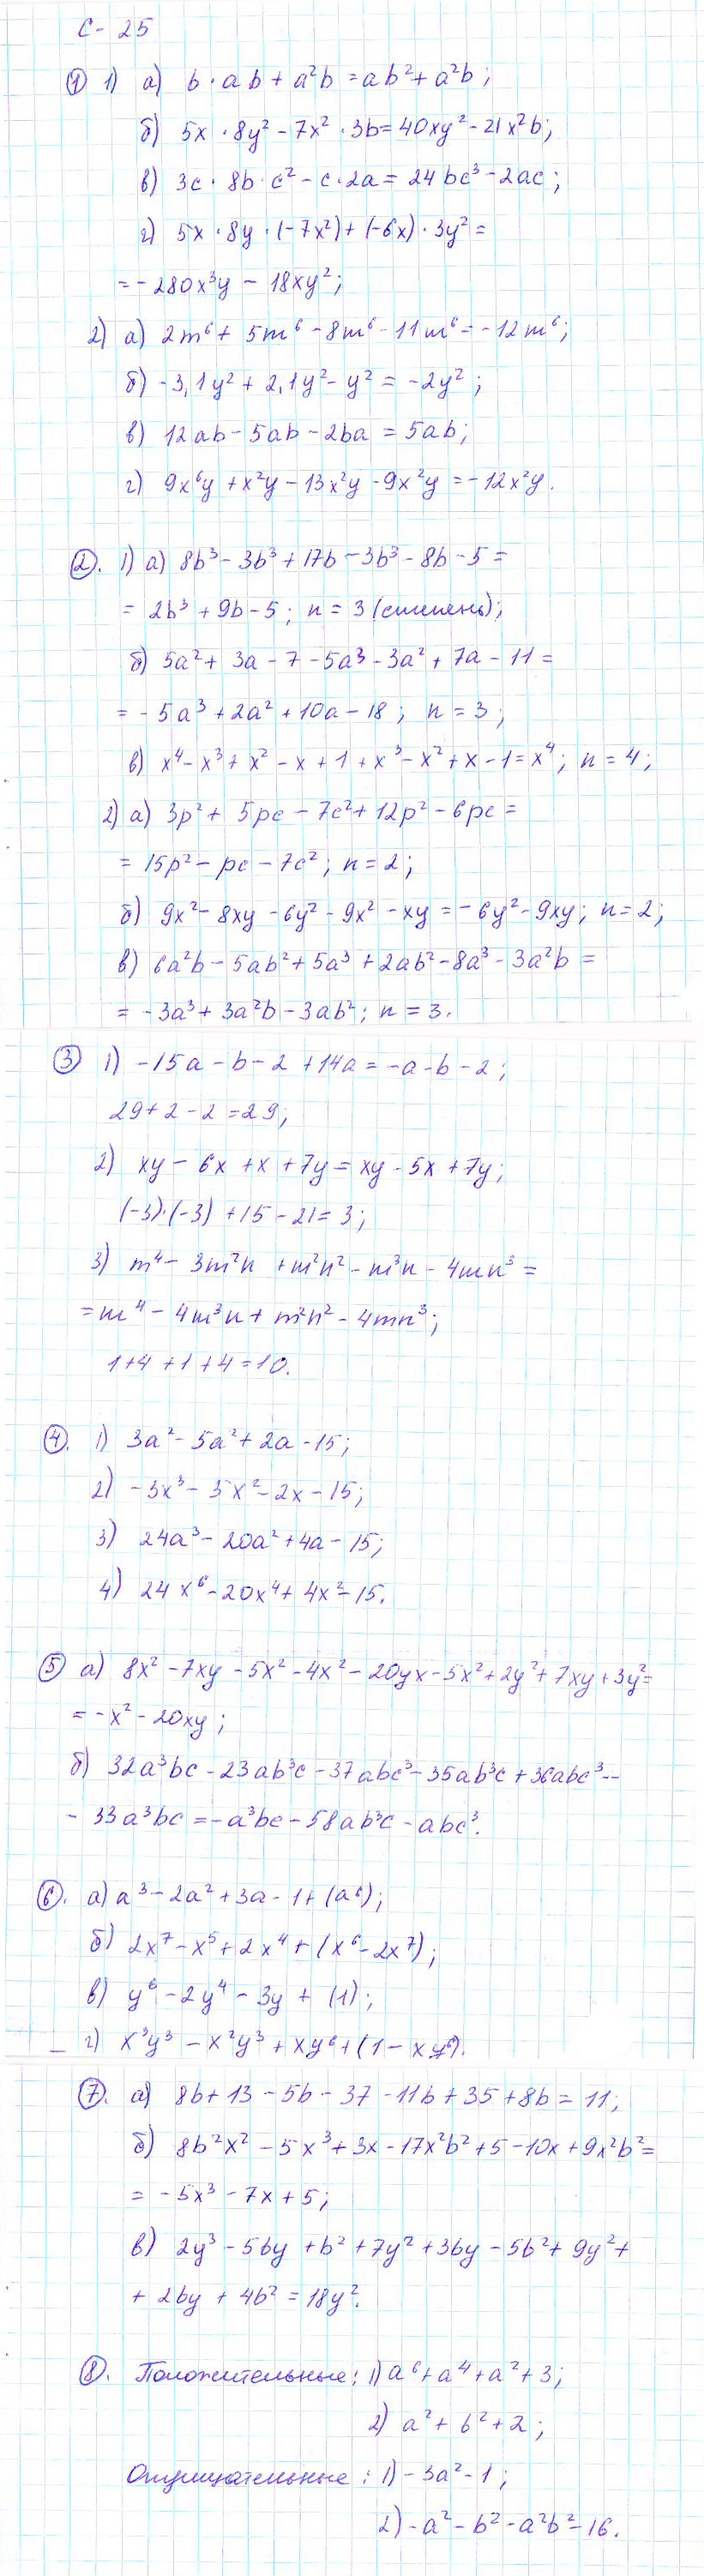 С-25
① 1) а) b · ab + a²b = ab² + a²b;
б) 5x · 8y² - 7x² · 3b = 40xy² - 21x²b;
в) 3c · 8b · c² - c · 2a = 24bc³ - 2ac;
г) 5x · 8y · (-7x²) + (-6x) · 3y² =
= -280x³y - 18xy²;
2) а) 2m⁶ + 5m⁶ - 8m⁶ - 11m⁶ = -12m⁶;
б) -3,1y² + 2,1y² - y² = -2y²;
в) 12ab - 5ab - 2ba = 5ab;
г) 9x⁶y + x²y - 13x²y - 9x²y = -12x²y.
②. 1) а) 8b³ - 3b³ + 17b - 3b³ - 8b - 5 =
= 2b³ + 9b - 5; n = 3 (степень);
б) 5a² + 3a - 7 - 5a³ - 3a² + 7a - 11 =
= -5a³ + 2a² + 10a - 18; n = 3;
в) x⁴ - x³ + x² - x + 1 + x³ - x² + x - 1 = x⁴; n = 4;
2) а) 3p² + 5pc - 7c² + 12p² - 6pc =
= 15p² - pc - 7c²; n = 2;
б) 9x² - 8xy - 6y² - 9x² - xy = -6y² - 9xy; n = 2;
в) 6a²b - 5ab² + 5a³ + 2ab² - 8a³ - 3a²b =
= -3a³ + 3a²b - 3ab²; n = 3.
③ 1) -15a - b - 2 + 14a = -a - b - 2;
29 + 2 - 2 = 29;
2) xy - 6x + x + 7y = xy - 5x + 7y;
(-3)·(-3) + 15 - 21 = 3;
3) m⁴ - 3m²n + m²n² - m³n - 4mn³ =
= m⁴ - 4m³n + m²n² - 4mn³;
1 + 4 + 1 + 4 = 10.
④. 1) 3a² - 5a² + 2a - 15;
2) -3x³ - 5x² - 2x - 15;
3) 24a³ - 20a² + 4a - 15;
4) 24x⁶ - 20x⁴ + 4x² - 15.
⑤ а) 8x² - 7xy - 5x² - 4x² - 20yx - 5x² + 2y² + 7xy + 3y² =
= -x² - 20xy;
б) 32a³bc - 23ab³c - 37abc³ - 35ab³c + 36abc³ -
- 33a³bc = -a³bc - 58ab³c - abc³.
⑥. а) a³ - 2a² + 3a - 1 + (a⁶);
б) 2x⁷ - x⁵ + 2x⁴ + (x⁶ - 2x⁷);
в) y⁶ - 2y⁴ - 3y + (1);
г) x³y³ - x²y³ + xy⁶ + (1 - xy⁶).
⑦. а) 8b + 13 - 5b - 37 - 11b + 35 + 8b = 11;
б) 8b²x² - 5x³ + 3x - 17x²b² + 5 - 10x + 9x²b² =
= -5x³ - 7x + 5;
в) 2y³ - 5by + b² + 7y² + 3by - 5b² + 9y² +
+ 2by + 4b² = 18y².
⑧. Положительные: 1) a⁶ + a⁴ + a² + 3;
2) a² + b² + 2;
Отрицательные: 1) -3a² - 1;
2) -a² - b² - a²b² - 16.